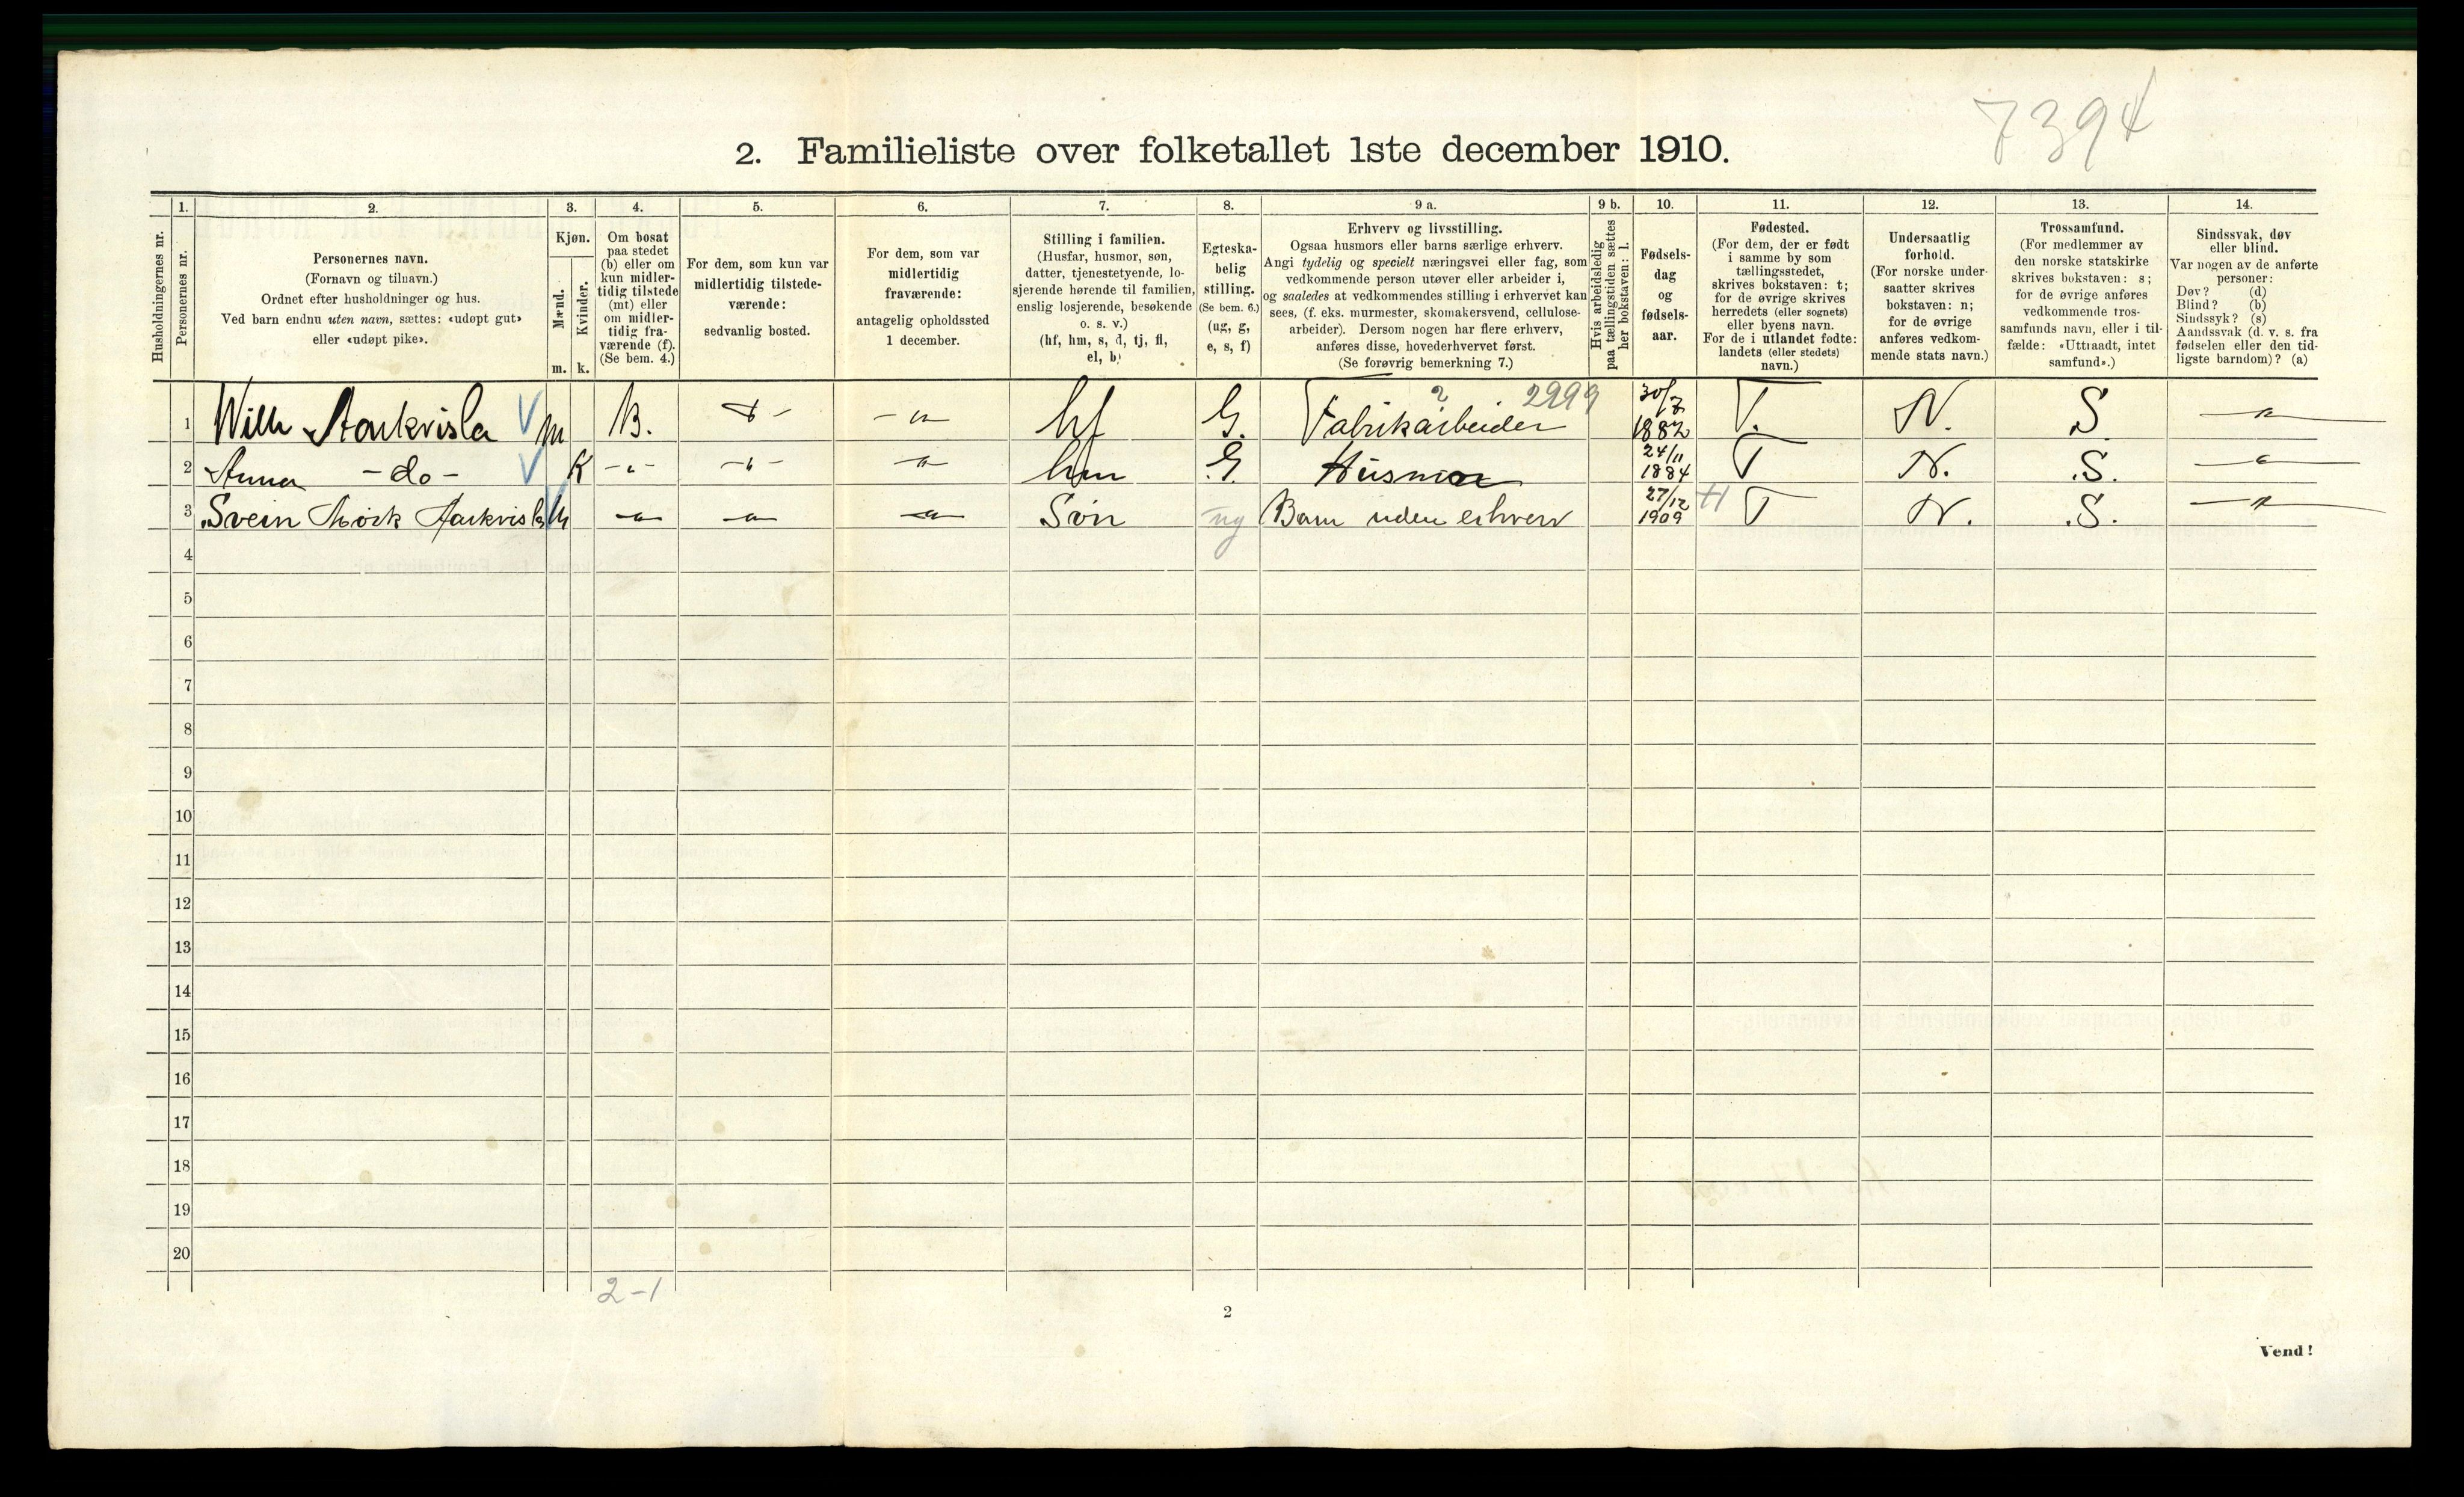 7394
2. Familieliste over folketallet 1ste december 1910.
Husholdningernes nr.
1. Personernes nr.
2. Personernes navn.
(Fornavn og tilnavn.)
Ordnet efter husholdninger og hus.
Ved barn endnu uten navn, sættes: «udøpt gut»
eller «udøpt pike».
3. Kjøn.
Mænd. m.
Kvinder. k.
4. Om bosat
paa stedet
(b) eller om
kun midler-
tidig tilstede
(mt) eller
om midler-
tidig fra-
værende (f).
(Se bem. 4.)
5. For dem, som kun var
midlertidig tilstede-
værende:
sedvanlig bosted.
6. For dem, som var
midlertidig
fraværende:
antagelig opholdssted
1 december.
7. Stilling i familien.
(Husfar, husmor, søn,
datter, tjenestetyende, lo-
sjerende hørende til familien,
enslig losjerende, besøkende
o. s. v.)
(hf, hm, s, d, tj, fl,
el, b)
8. Egteska-
belig
stilling.
(Se bem. 6.)
(ug, g,
e, s, f)
9 a. Erhverv og livsstilling.
Ogsaa husmors eller barns særlige erhverv.
Angi tydelig og specielt næringsvei eller fag, som
vedkommende person utøver eller arbeider i,
og saaledes at vedkommendes stilling i erhvervet kan
sees, (f. eks. murmester, skomakersvend, cellulose-
arbeider). Dersom nogen har flere erhverv,
anføres disse, hovederhvervet først.
(Se forøvrig bemerkning 7.)
9 b. Hvis arbeidsledig
paa tællingstiden sættes
her bokstaven: l.
10. Fødsels-
dag
og
fødsels-
aar.
11. Fødested.
(For dem, der er født
i samme by som
tællingsstedet,
skrives bokstaven: t;
for de øvrige skrives
herredets (eller sognets)
eller byens navn.
For de i utlandet fødte:
landets (eller stedets)
navn.)
12. Undersaatlig
forhold.
(For norske under-
saatter skrives
bokstaven: n;
for de øvrige
anføres vedkom-
mende stats navn.)
13. Trossamfund.
(For medlemmer av
den norske statskirke
skrives bokstaven: s;
for de øvrige anføres
vedkommende tros-
samfunds navn, eller i til-
fælde: «Uttraadt, intet
samfund».)
14. Sindssvak, døv
eller blind.
Var nogen av de anførte
personer:
Døv? (d)
Blind? (b)
Sindssyk? (s)
Aandssvak (d. v. s. fra
fødselen eller den tid-
ligste barndom)? (a)
1 Wilh Aarkvisla V m B. -"- -"- hf G. Fabrikarbeider 2 2999 30/7 1882 T. N. S. -"-
2 Anna -do- V K -"- -"- -"- hm G. Husmor 24/11 1884 T N. S. -"-
3 Svein Mörk Aarkvisla V m -"- -"- -"- Sön ug Barn uden erhverv 27/12 1909 H T N. S. -"-
4
5
6
7
8
9
10
11
12
13
14
15
16
17
18
19
20
2-1
2
Vend!